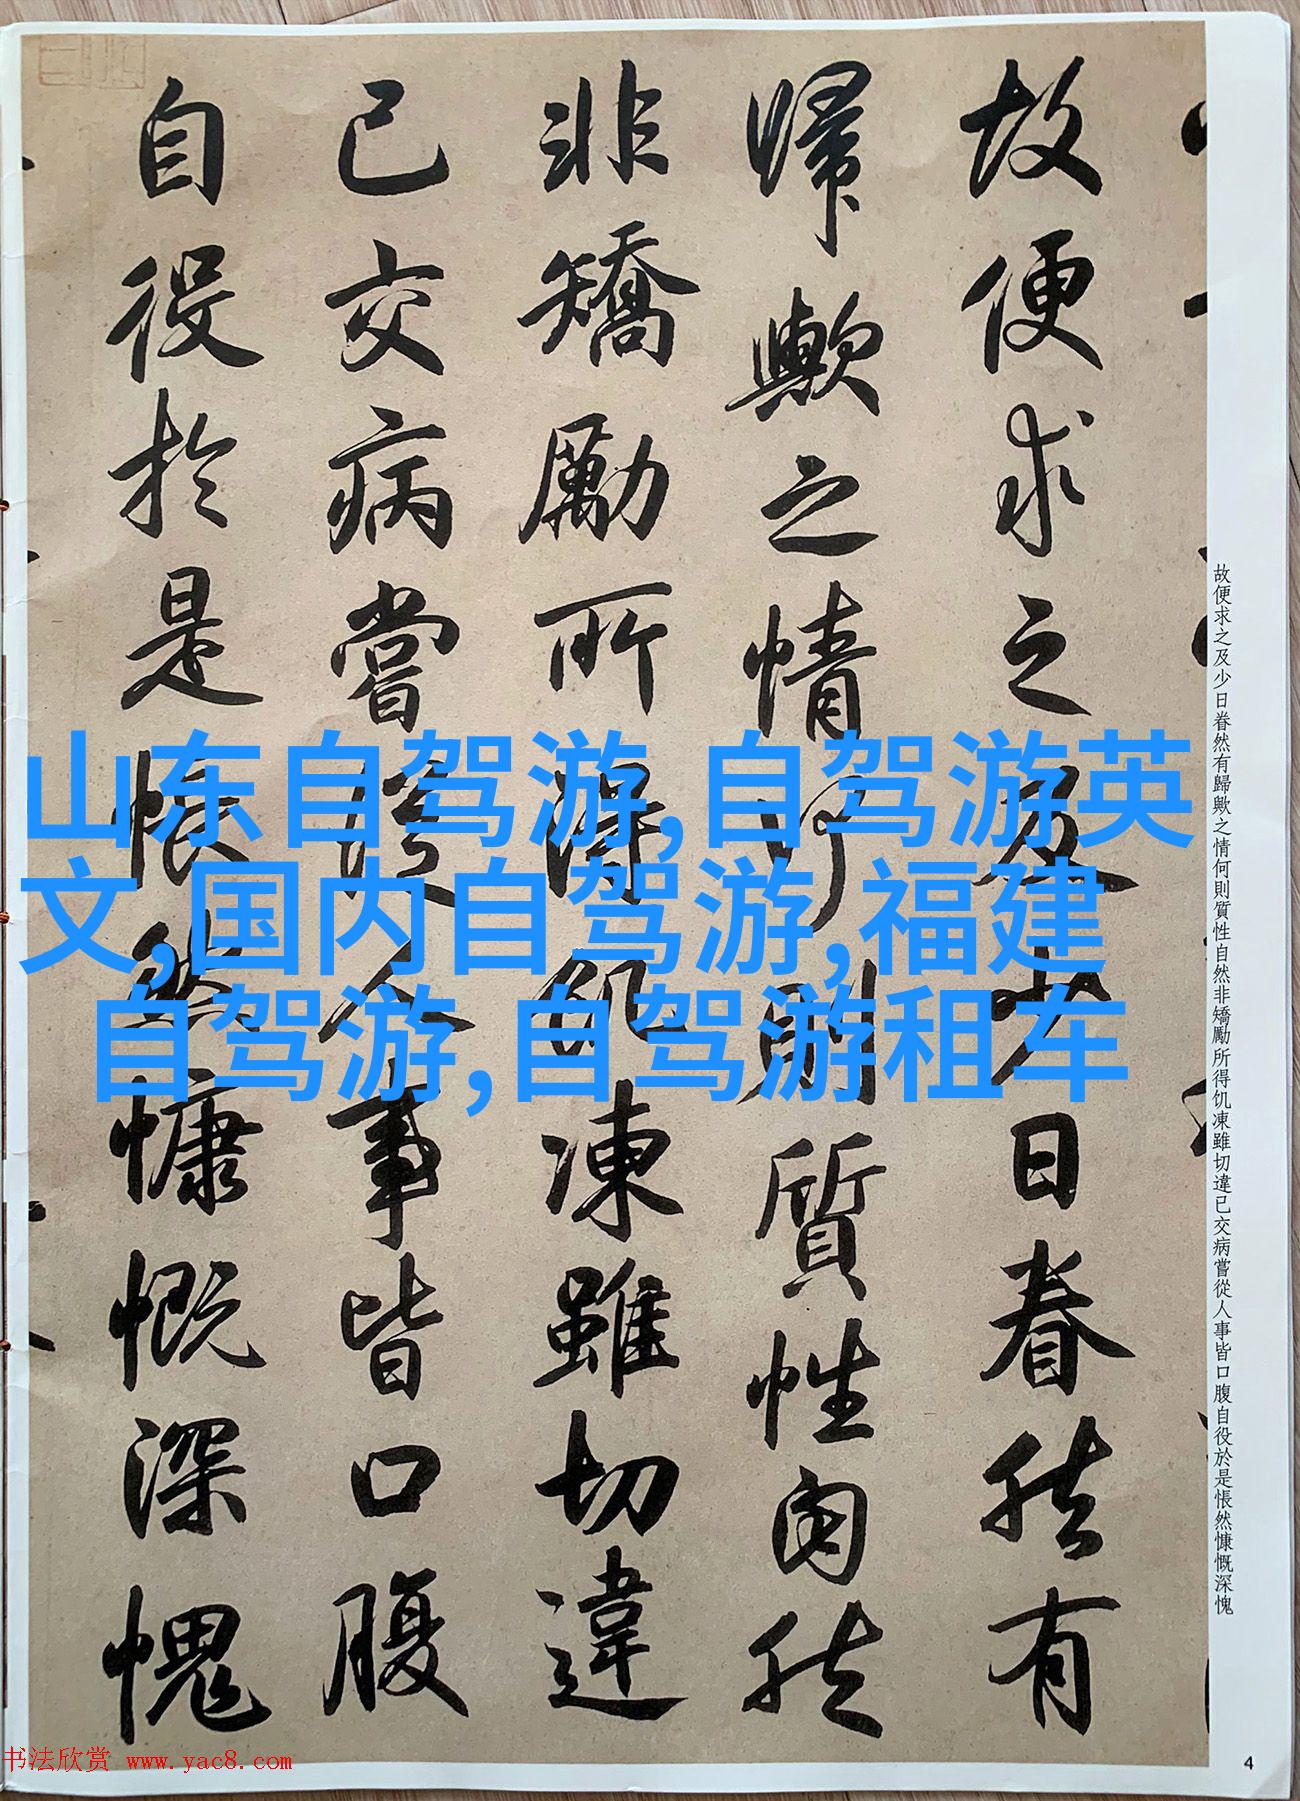 故便求之及少日眷然有
歸歟之情何則質性自然
非矯勵所得飢凍雖切違
已交病嘗從人事皆口腹
自役於是悵然慷慨深愧
山东自驾游,自驾游英
文,国内自驾游,福建
自驾游,自驾游租车
故便求之及少日眷然有歸歟之情何則質性自然非矯勵所得饥凍雖切違已交病嘗從人事皆口腹自役於是悵然慷慨深愧
书法欣赏 www.yac8.com
4